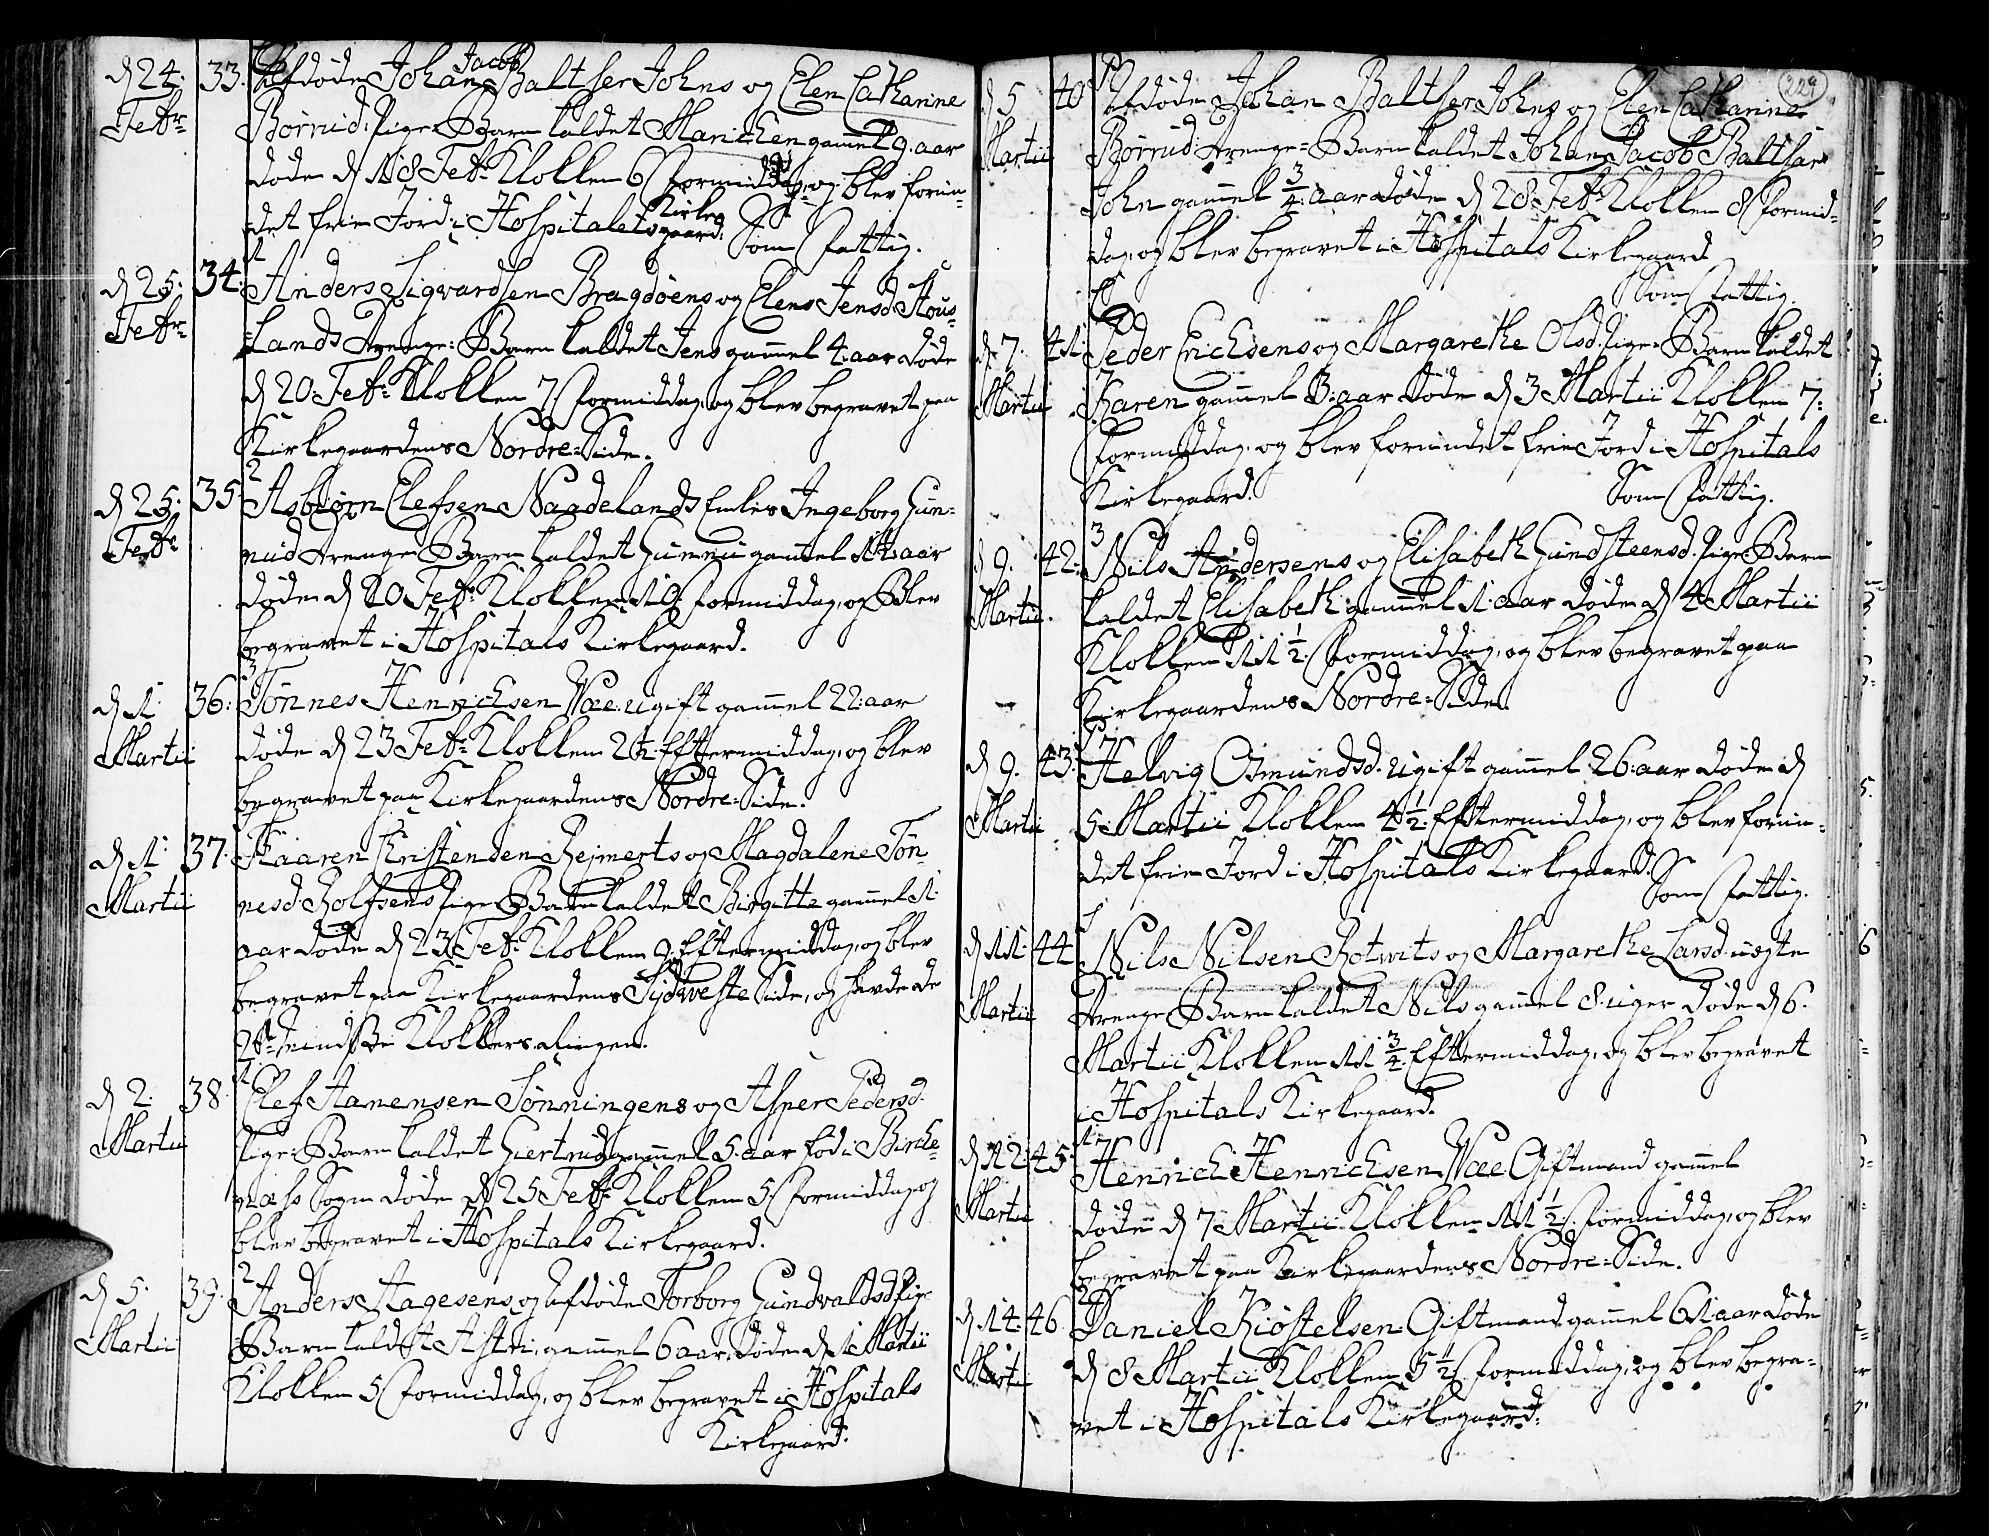 d 24: Febr 33. Afdøde Johan Jacob Baltser Johns og Elen Catharine
Børnid: Pige-Barn kaldet Manichen gammel 9. aar
døde d 18 Febr: Klokken 6 Formiddag, og blev forun-
det frie Jord i Hospitalets Kirkegaard. Som Fattig.
d 25: Febr 34. Anders Sigvardsen Bragdøens og Elens Jensd Hous-
Lands Drenge-Barn kaldet Jens gammel 4. aar døde
d 20 Febr: Klokken 7. Formiddag, og blev begravet paa
Kirkegaardens Nordre-Side.
d 25: Febr 35 Asbiørn Elefsen Naadelands Enkes Ingeborg Gun-
nud Drenge Barn kaldet Gunnu gammel 11 aar
døde d 20 Febr: Klokken 10. Formiddag, og Blev
begravet i Hospitals Kirkegaard.
d 1 Martii 36: Tønnes Henrichsen Wee: ugift gammel 22: aar
døde d 23 Febr: Klokken 2½. Eftermiddag, og blev
begravet paa Kirkegaardens Nordre-Side.
d 1 Martii 37. Kaaren Christenden Rejmerts og Magdalene Tøn-
nesd Rolfsens Pige Barn kaldet Birgitte gammel 1
aar døde d 23 Febr: Klokken 9. Eftermiddag, og blev
begravet paa Kirkegaardens Sydveste Side, og havde de
Klokkers Ringen.
d 2. Martii 38. Elef Aanensen Sønningens og Asper Pedersd.
Pige-Barn kaldet Giertrud gammel 5. aar fød i Birche-
næss Sogn døde d 25 Febr: Klokken 5 Formiddag og
blev begravet i Hospitals Kirkegaard.
d 5. Martii 39. Anders Aagesens og Afdøde Torborg Gundvaldsd Pige
Barn kaldet Astri, gammel 6 aar, døde d 1 Martii
Klokken 5 Formiddag, og blev begravet i Hospitals
Kirkegaard.
229
d 5 Martii 40 Afdøde Johan Baltser Johns og Elen Catharine
Børnid: Drenge-Barn kaldet Johan Jacob Baltsar
John gammel ¾ aar døde d 28 Febr: Klokken 8 Formid-
dag, og blev begravet i Hospitals Kirkegaard
Som Fattig.
d 7. Martii 41 Peder Erichsens og Margarethe Olsd. Pige-Barn kaldet
Karen gammel 3: aar døde d 3 Martii Klokken 7:
Formiddag, og blev forundet frie Jord i Hospitals
Kirkegaard. Som Fattig.
d 9. Martii. 42: Nils Andersens og Elisabeth Gundsteensd. Pige Barn
kaldet Elisabeth gammel 1: aar døde d 4 Martii
Klokken 11½. Formiddag, og blev begravet paa
Kirkegaardens Nordre-Side.
d 9. Martii 43: Helvig Osmundsd: ugift gammel 26: aar døde d
5 Martii Klokken 4½. Eftermiddag, og blev forun-
det frie Jord i Hospitals Kirkegaard. Som Fattig.
d 11 Martii 44 Nils Nilsen Rotwits og Margarethe Larsd: uægte
Drenge Barn kaldet Nils gammel 8. uger døde d 6.
Martii Klokken 11¾. Eftermiddag, og blev begravet
i Hospitals Kirkegaard.
d 12: Martii 45: Henrich Henrichsen Wee: Giftmand gammel
døde d 7 Martii Klokken 11½. Formiddag, og blev
begravet paa Kirkegaardens Nordre-Side.
d 14: Martii 46. Daniel Kiøstelsen Giftmand gammel 61 aar døde
d 8 Martii Klokken 5½. Formiddag, og blev begra-
vet i Hospitals Kirkegaard.